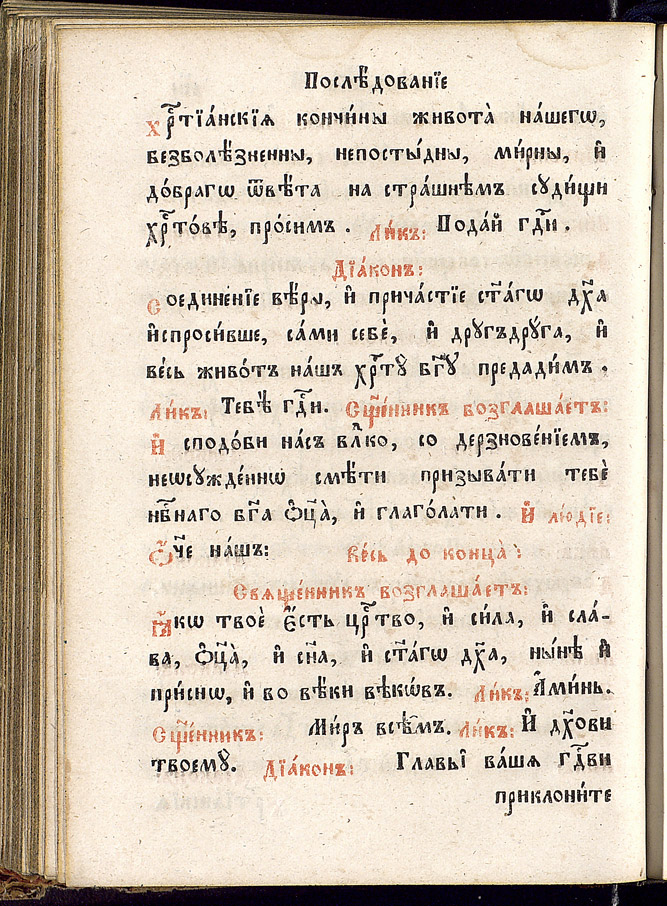 Послѣ́дованїе
хрⷭ҇тїа́нскїѧ кончи́ны живота̀ на́шегѡ,
безболѣ́зненны, непосты́дны, ми́рны, и҆
до́брагѡ ѿвѣ́та на стра́шнѣмъ сꙋди́щи
хрⷭ҇то́вѣ, про́симъ . Ли́къ: Пода́й гдⷭ҇и .
Дїа́конъ:
Соедине́нїе вѣ́ры, и҆ прича́стїе ст҃а́гѡ дх҃а
и҆спроси́вше, са́ми себѐ, и҆ дрꙋ́гъдрꙋ́га, и҆
ве́сь живо́тъ на́шъ хрⷭ҇тꙋ̀ бг҃ꙋ предади́мъ .
Ли́къ: Тебѣ̀ гдⷭ҇и. Сщ҃е́нникъ возглаша́етъ:
И҆ сподо́би на́съ влⷣко, со дерзнове́нїемъ,
неѡсꙋжде́ннѡ смѣ́ти призыва́ти тебѐ
нбⷭ҇наго бг҃а ѻ҆ц҃а̀, и҆ глаго́лати . И҆ лю́дїе:
Ѻ҆́ч҃е на́шъ: Ве́сь до конца̀ :
Свяще́нникъ возглаша́етъ:
Ꙗ҆́кѡ твоѐ є҆́сть црⷭ҇тво, и҆ си́ла, и҆ сла́-
ва, ѻ҆ц҃а̀, и҆ сн҃а, и҆ ст҃а́гѡ дх҃а, ны́нѣ и҆
при́снѡ, и҆ во вѣ́ки вѣкѡ́въ. Ли́къ: А҆ми́нь.
Сщ҃е́нникъ: Ми́ръ всѣ́мъ. Ли́къ: И҆ дх҃ови
твоемꙋ̀. Дїа́конъ: Главы̀ ва́шѧ гдⷭ҇ви
приклони́те